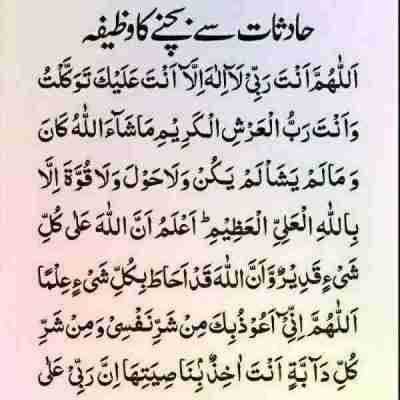 حادثات سے بچنے کا وظیفہ
اَللّٰهُمَّ اَنْتَ رَبِّیْ لَآ اِلٰهَ اِلَّآ اَنْتَ عَلَیْكَ تَوَكَّلْتُ
وَاَنْتَ رَبُّ الْعَرْشِ الْكَرِیْمِ مَاشَآءَ اللّٰهُ كَانَ
وَ مَالَمْ یَشَاْ لَمْ یَكُنْ وَلَا حَوْلَ وَلَا قُوَّةَ اِلَّا
بِاللّٰهِ الْعَلِیِّ الْعَظِیْمِ ؕ اَعْلَمُ اَنَّ اللّٰهَ عَلٰی كُلِّ
شَیْءٍ قَدِیْرٌ وَّاَنَّ اللّٰهَ قَدْ اَحَاطَ بِكُلِّ شَیْءٍ عِلْمًا
اَللّٰهُمَّ اِنِّیْٓ اَعُوْذُبِكَ مِنْ شَرِّ نَفْسِیْ وَ مِنْ شَرِّ
كُلِّ دَآبَّةٍ اَنْتَ اٰخِذٌۢ بِنَاصِیَتِهَا اِنَّ رَبِّیْ عَلٰی